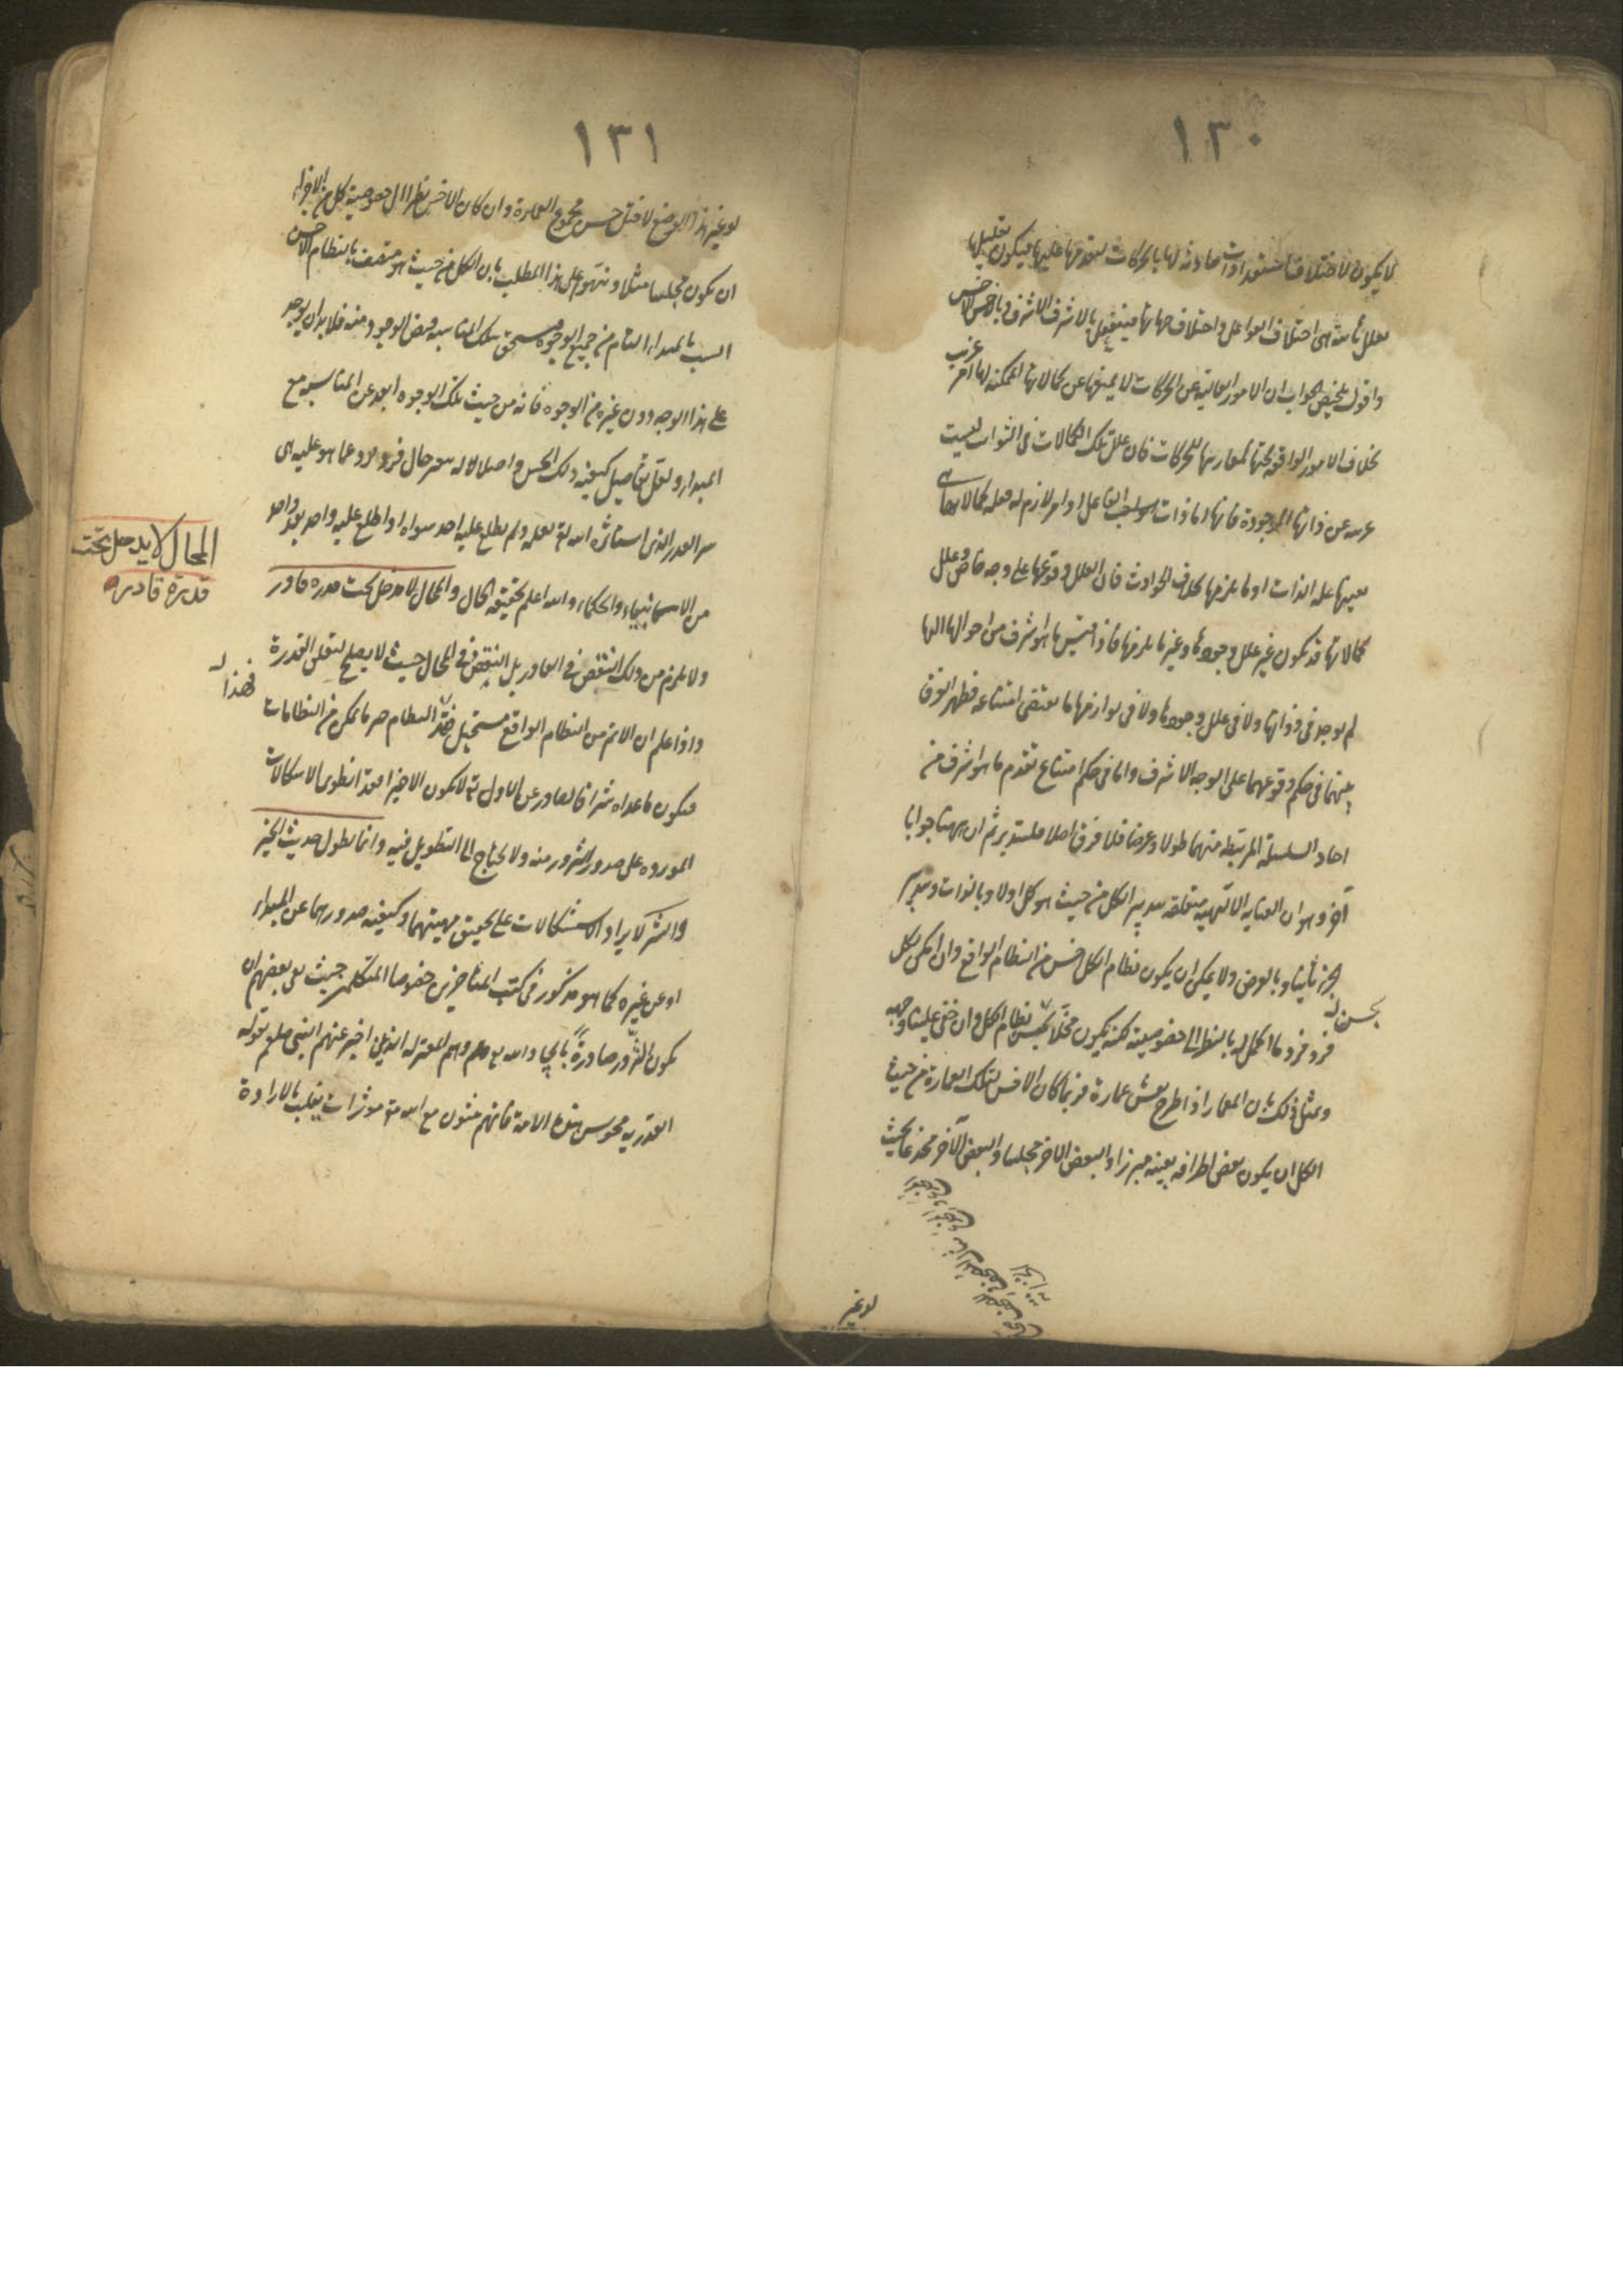 ١٣٠
لا يكون لاختلاف استعدادات حادثه لها بالحركات لتقدمها عليها فيكون تقليلها
بعلل ثابتة هى اختلاف الفواعل و اختلاف جهاتها فينفعل بالاشرف الاشرف و بالاخس الاخس
واقول تلخيص الجواب ان الامور العالية عن الحركات لا يمنعها عن كمالاتها الممكنة لها امر غريب
بخلاف الامور الواقعة تحتها لمقارنتها للحركات فان علل تلك الكمالات فى الثوابت ليست
غريبه عن ذاتها الموجودة فانها اما ذات الفاعل او امر لازم له فعله كمالاتها
بعينها علة الذات او ما يلزمها بخلاف الحوادث فان العلل وقوعها على وجه خاص وعلل
كمالاتها قد تكون غير علل وجودها وغير ما يلزمها فاذا قيس ما هو اشرف من احوالها اليها
لم يوجد فى ذواتها ولا فى علل وجودها ولا فى لوازمها ما يقتضى امتناعه فظهر الفرق
بينهما فى حكم وقوعهما على الوجه الاشرف واما فى حكم امتناع تقدم ما هو اشرف من
احاد السلسلة المرتبطة منهما طولا وعرضا فلا فرق اصلا فليتدبر ثم ان ههنا جوابا
آخر وهو ان العناية الالهية متعلقه بتدبير الكل من حيث هو كل اولا وبالذات وبتدبير
الجزء ثانيا وبالعرض ولا يمكن ان يكون نظام الكل احسن من النظام الواقع وان امكن لكل
بحسن له
فرد فرد ما اكمل له بالنظر الى خصوصيته لكنه يكون مخلا بحسن نظام الكل وان خفى علينا وجهه
ومثال ذلك بان المعمار اذا طرح نقش عمارة فربما كان الاحسن لتلك العمارة من حيث
الكل ان يكون بعض اطرافه بعينه مبرزا والبعض الاخر مجلسا والبعض الآخر مخدعا بحيث
لو غير
١٣١
لو غير هذا الوضع لاختل حسن مجموع العمارة وان كان الاحسن نظرا الى خصوصية كل من الاجزاء
ان يكون مجلسا مثلا و على هذا المطلب بان الكل من حيث هو متصف بالنظام الاحسن
انسب بالمبداء التام من جميع الوجوه فيستحق بتلك المناسبه فيض الوجود منه فلا بد ان يوجد
على هذا الوجه دون غيره من الوجوه فانه من حيث تلك الوجوه ابعد عن المناسبه مع
المبداء ولعل تفاصيل كيفية ذلك الحسن و انه تغير حال فرد فرد عما هو عليه هى
سر القدر الذى استاثره الله تعالى بعلمه ولم يطلع عليه احد سواه او اطلع عليه واحد بعد واحد
من الانبياء والحكماء والله اعلم بحقيقة الحال والمحال لا يدخل تحت قدرة قادر
ولا يلزم من ذلك النقص فى القادر بل النقص فى المحال حيث لا يصلح لتعلق القدرة
واذا علم ان الاتم من النظام الواقع مستحيل فهذا النظام خير ما يمكن من النظامات
فيكون ما عداه شرا فالصادر عن الاول تعالى لا يكون الا خيرا فقد انطوى الاشكالات
الموردة على صدور الشرور منه ولا نحتاج الى التطويل فيه وانما يطول حديث الخير
والشر لا يراد الاشكالات على تحقيق مهيتهما وكيفية صدورهما عن المبداء
او عن غيره كما هو مذكور فى كتب المتاخرين خصوصا المتكلمين حيث نفى بعضهم ان
يكون الشرور صادرة بايجاد الله تعالى وهم المعتزله الذين اخبر عنهم النبى صلعم بقوله
القدريه مجوس هذه الامة فانهم مثبتون مع الله تعالى موثرات بالارادة
المحال لا يدخل تحت
قدرة قادر
فهذا